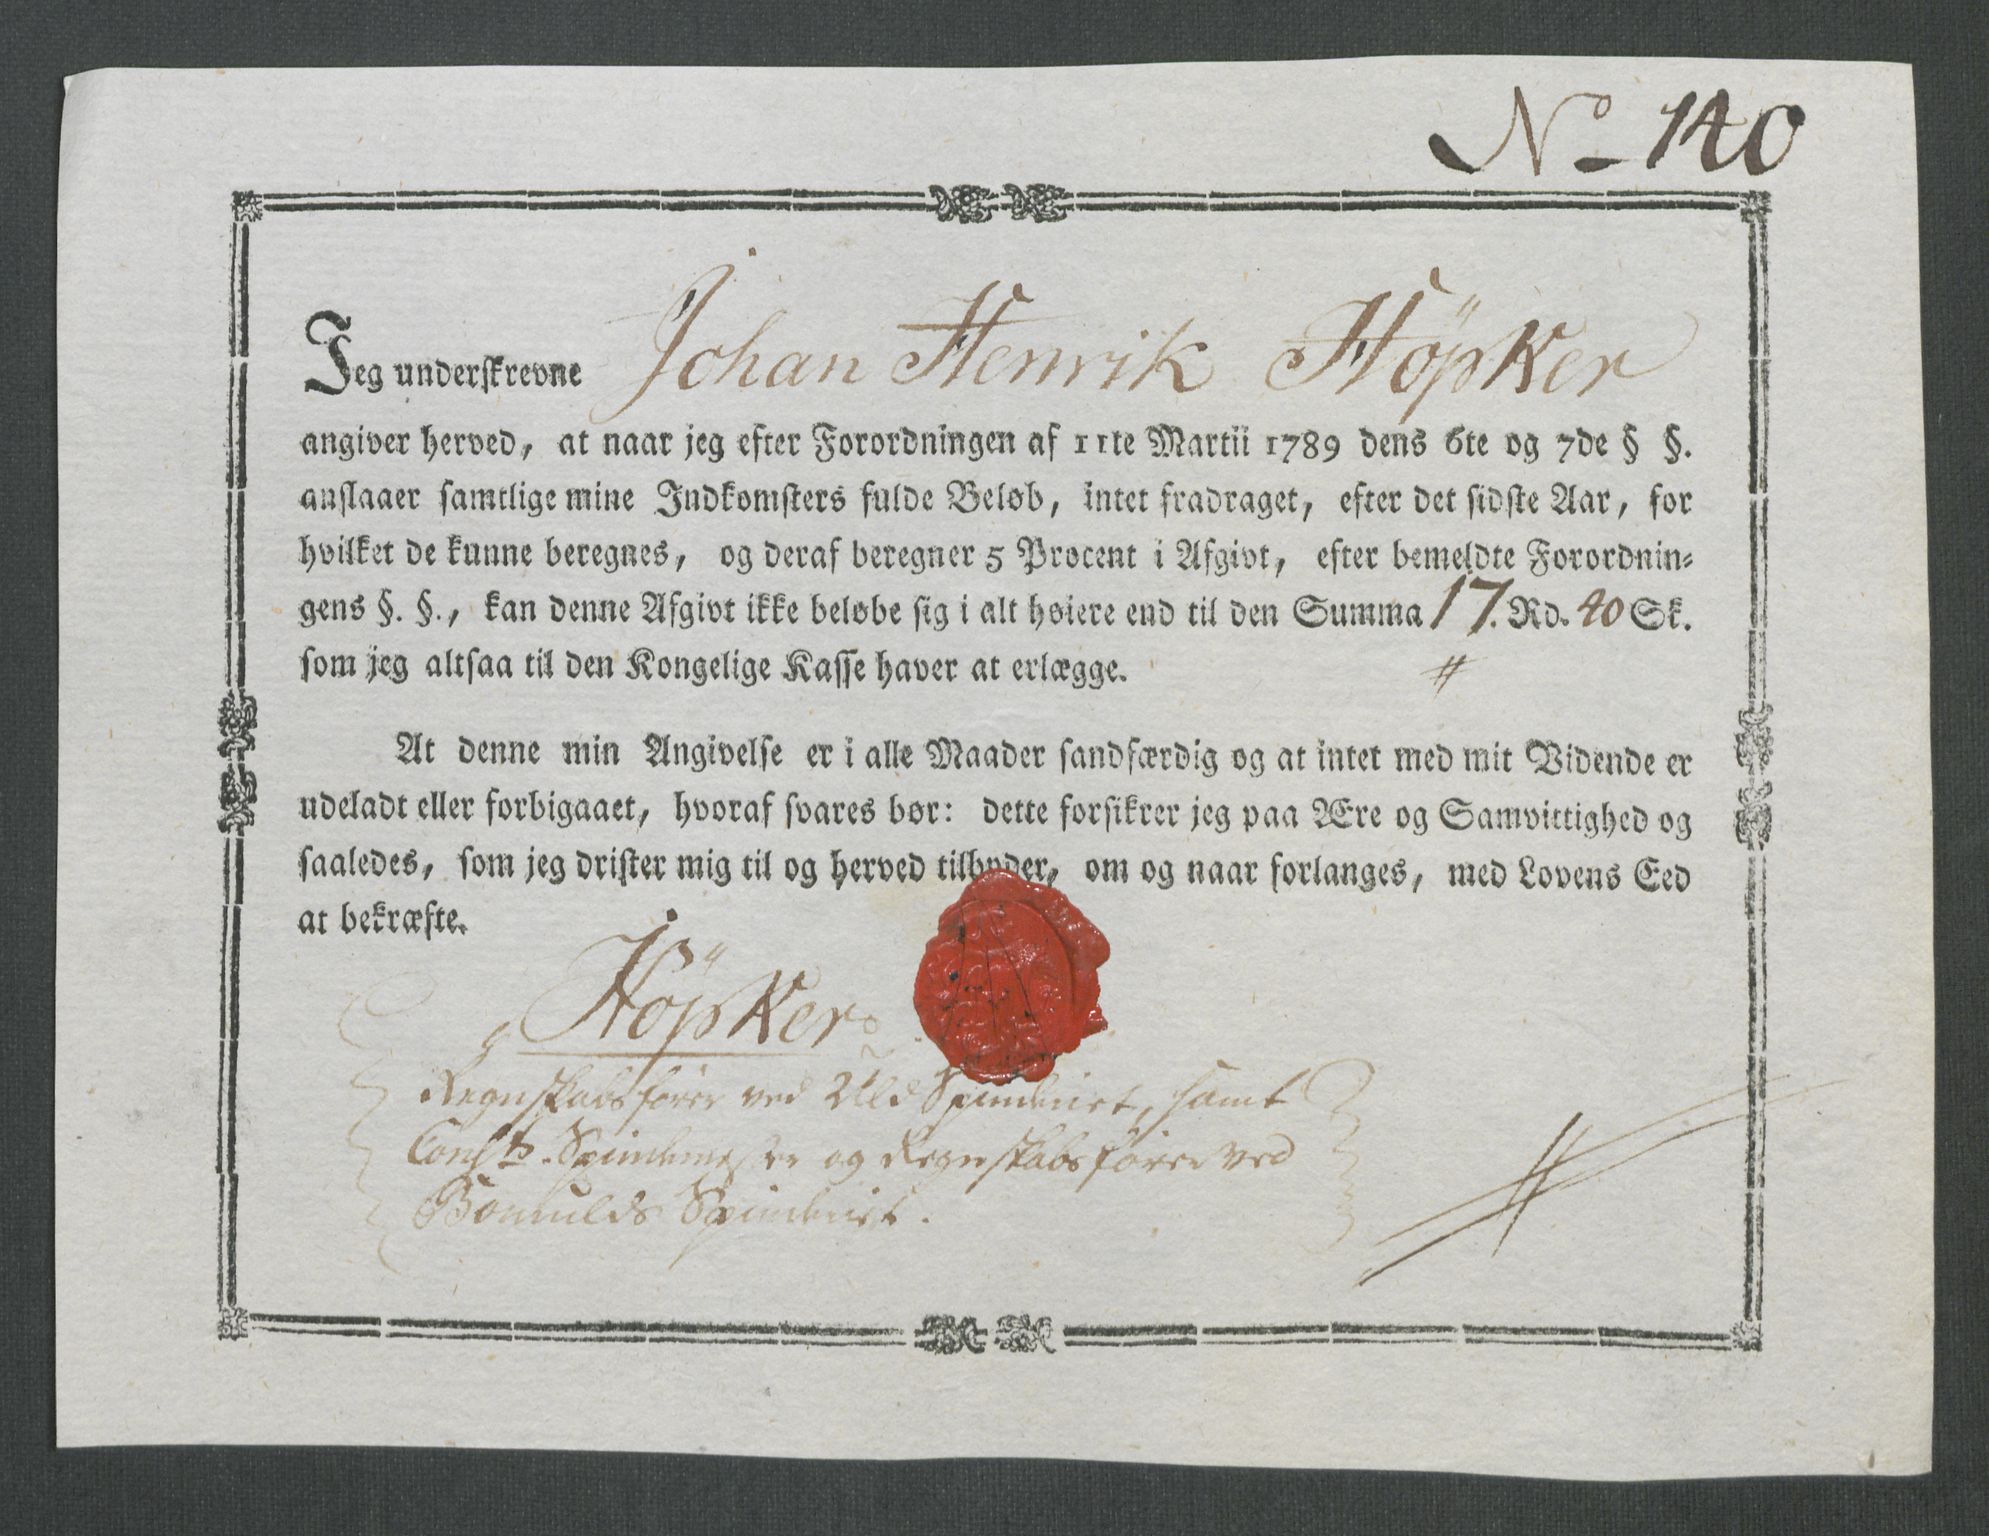 No 140
Jeg underskrevne Johan Henrik Höpker
angiver herved, at naar jeg efter Forordningen af 11te Martii 1789 dens 6te og 7de § §.
anslaaer samtlige mine Indkomsters fulde Beløb, intet fradraget, efter det sidste Aar, for
hvilket de kunne beregnes, og deraf beregner 5 Procent i Afgivt, efter bemeldte Forordnin=
gens §. §., kan denne Afgivt ikke beløbe sig i alt høiere end til den Summa 17. Rd. 40 Sk.
som jeg altsaa til den Kongelige Kasse haver at erlægge.
At denne min Angivelse er i alle Maader sandfærdig og at intet med mit Vidende er
udeladt eller forbigaaet, hvoraf svares bør: dette forsikrer jeg paa Ære og Samvittighed og
saaledes, som jeg drister mig til og herved tilbyder, om og naar forlanges, med Lovens Eed
at bekræfte.
Höpker
Regnskabsfører ved Uld Spinderiet, samt
Const. Spindemester og Regnskabsfører ved
Bomulds Spinderiet.